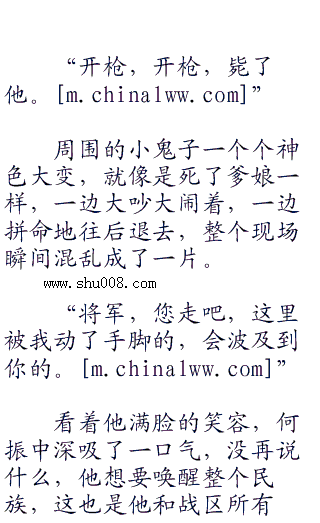 “开枪，开枪，毙了
他。[m.china1ww.com]”
周围的小鬼子一个个神
色大变，就像是死了爹娘一
样，一边大吵大闹着，一边
拼命地往后退去，整个现场
瞬间混乱成了一片。
www.shu008.com
“将军，您走吧，这里
被我动了手脚的，会波及到
你的。[m.china1ww.com]”
看着他满脸的笑容，何
振中深吸了一口气，没再说
什么，他想要唤醒整个民
族，这也是他和战区所有